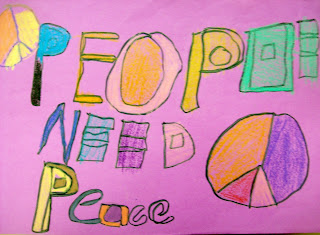 PEOPLE
NEED
Peace